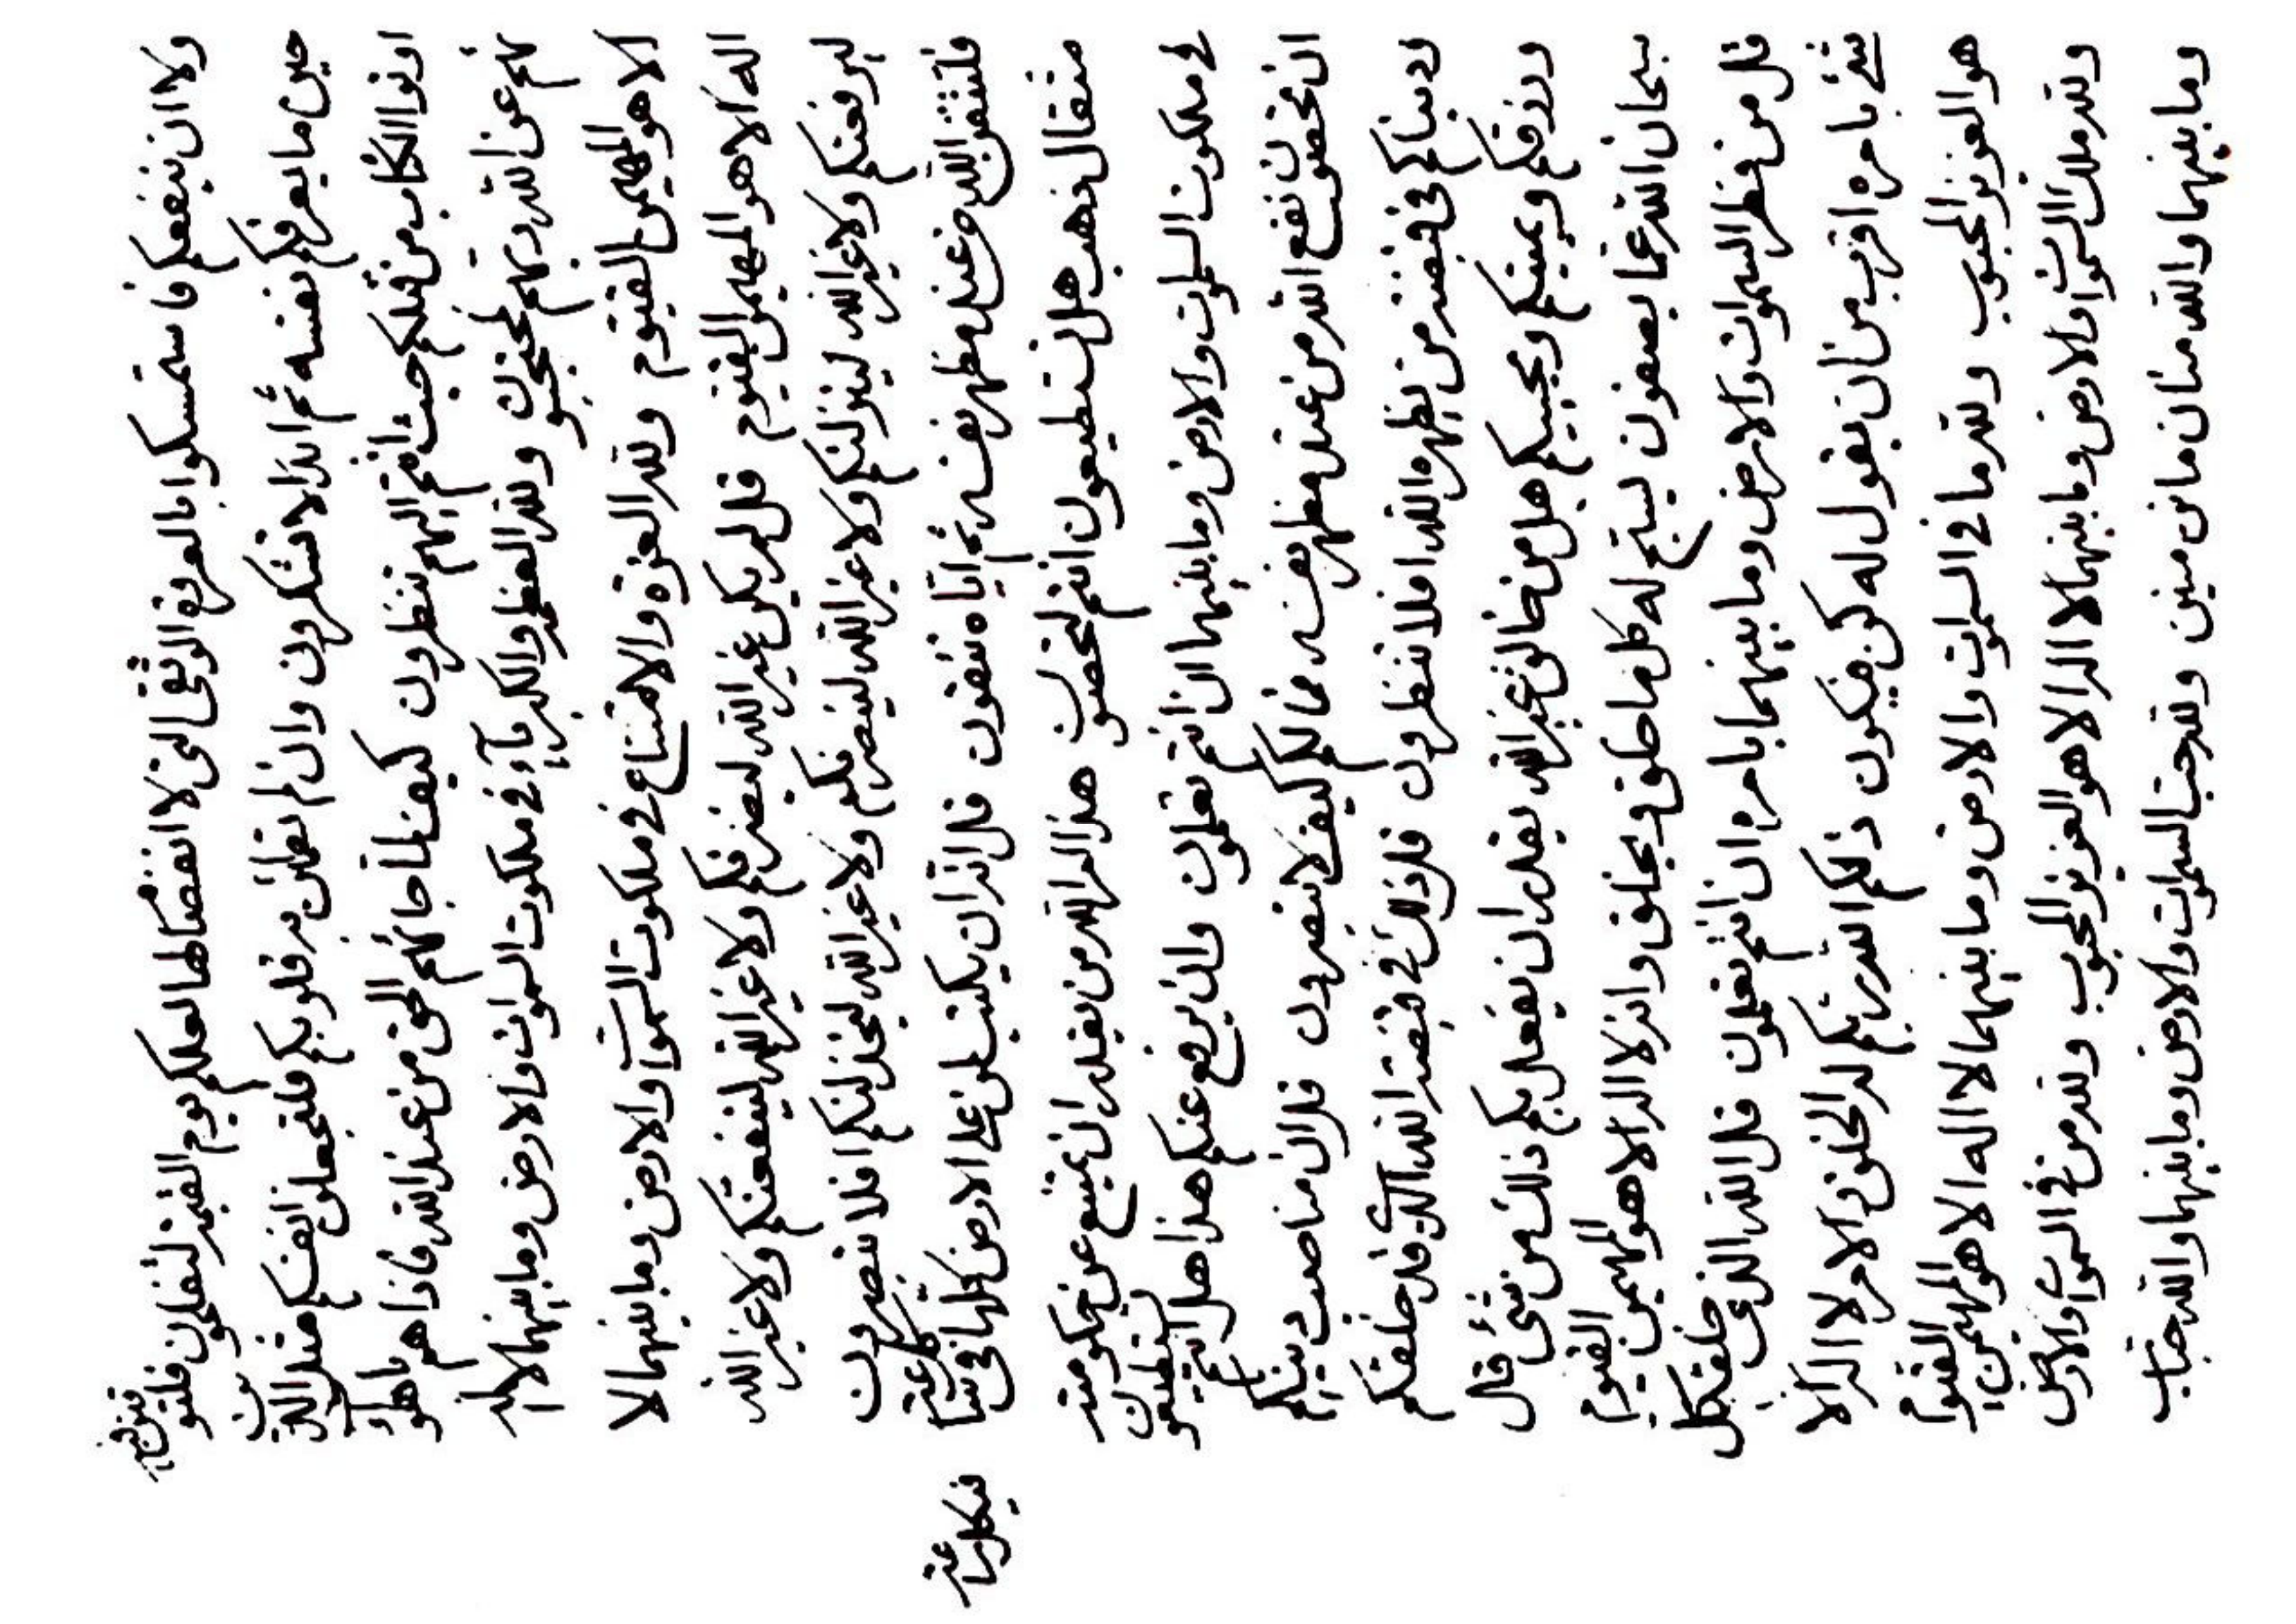 ولا ان ينفعكم فاستمسكوا بالعروة الوثقى التى لا انفصام لها لعلكم يوم القيمة لتفلحون فلتوقنن به
حين ما يعرفكم نفسه ثم اياه لا تشكرون وان لم تطمئن به قلوبكم فلتجعلن انفسكم مثل الذين
اوتوا الكتاب من قبلكم حيث انتم اليهم تنظرون كيف لما جائهم الحق من عند الله فاذا هم باهوائهم
عن الله ربهم لمحتجبون ولله العظمة والكبرياء فى ملكوت السموات والارض وما بينهما لا اله
الا هو المهيمن القيوم ولله العزة والامتناع فى ملكوت السموات والارض وما بينهما لا
اله الا هو المهيمن القيوم قل لم يكن غير الله ليضرنكم ولا غير الله لينفعنكم ولا غير الله
ليرفعنكم ولا غير الله لينزلنكم ولا غير الله لينصرنكم ولا غير الله ليخذلنكم افلا تبصرون
فلتتقن الله عند مظهر نفسه ثم اياه تتقون قل الله ان يكتب لمن على الارض كلها فى
مثقال ذهب هل تستطيعون انتم لتخصون هذا امر الله من يقدر ان يمتنع عن حكومته
فى ملكوت السموات والارض وما بينهما ان انتم تعلمون وان يرفع عنكم هذا هل انتم تستطيعون
ان تحصون نفع الله من عند مظهر نفسه فما لكم كيف لا تبصرون قل ان مناصب دينكم
ودنياكم فى قبضة من يظهره الله افلا تنظرون قل ذلك فى قبضة الله الذى قد خلقكم
ورزقكم ويميتكم ويحييكم هل من خالق غير الله يقدر ان يفعل بكم ذلك من شئ قال
سبحان الله عما يصفون يسبح له كل ما خلق ويخلق وانه لا اله الا هو المهيمن القيوم
قل من فطر السموات والارض وما بينهما بامره ان انتم تعلمون قل الله الذى خلق كل
شئ بامره اقرب من ان يقول له كن فيكون ذلكم الله ربكم له الخلق والامر لا اله الا
هو العزيز المحبوب ولله ما فى السموات والارض وما بينهما لا اله الا هو المهيمن القيوم
ولله ملك السموات والارض وما بينهما لا اله الا هو العزيز المحبوب ولله من فى السموات والارض
وما بينهما والله منان مانن منين ولله جناب السموات والارض وما بينهما والله جناب